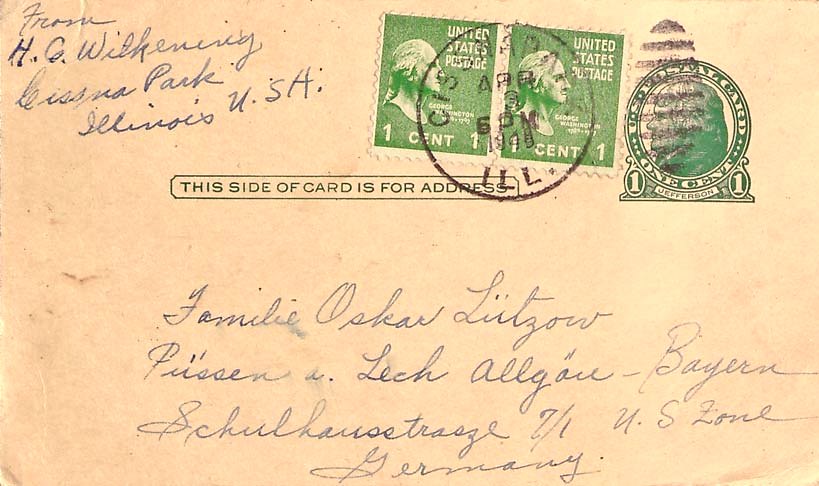 From
H. G. Wilkening
Cissna Park
Illinois U.S.A.
UNITED STATES POSTAGE
GEORGE WASHINGTON
1789-1797
1 CENT 1
UNITED STATES POSTAGE
GEORGE WASHINGTON
1 CENT 1
CISSNA PARK
APR
6 PM
1948
ILL.
U.S. POSTAL CARD
ONE CENT
1 JEFFERSON 1
THIS SIDE OF CARD IS FOR ADDRESS
Familie Oskar Lützow
Füssen a. Lech Allgäu - Bayern
Schulhausstrasze 7/1 U.S Zone
Germany.